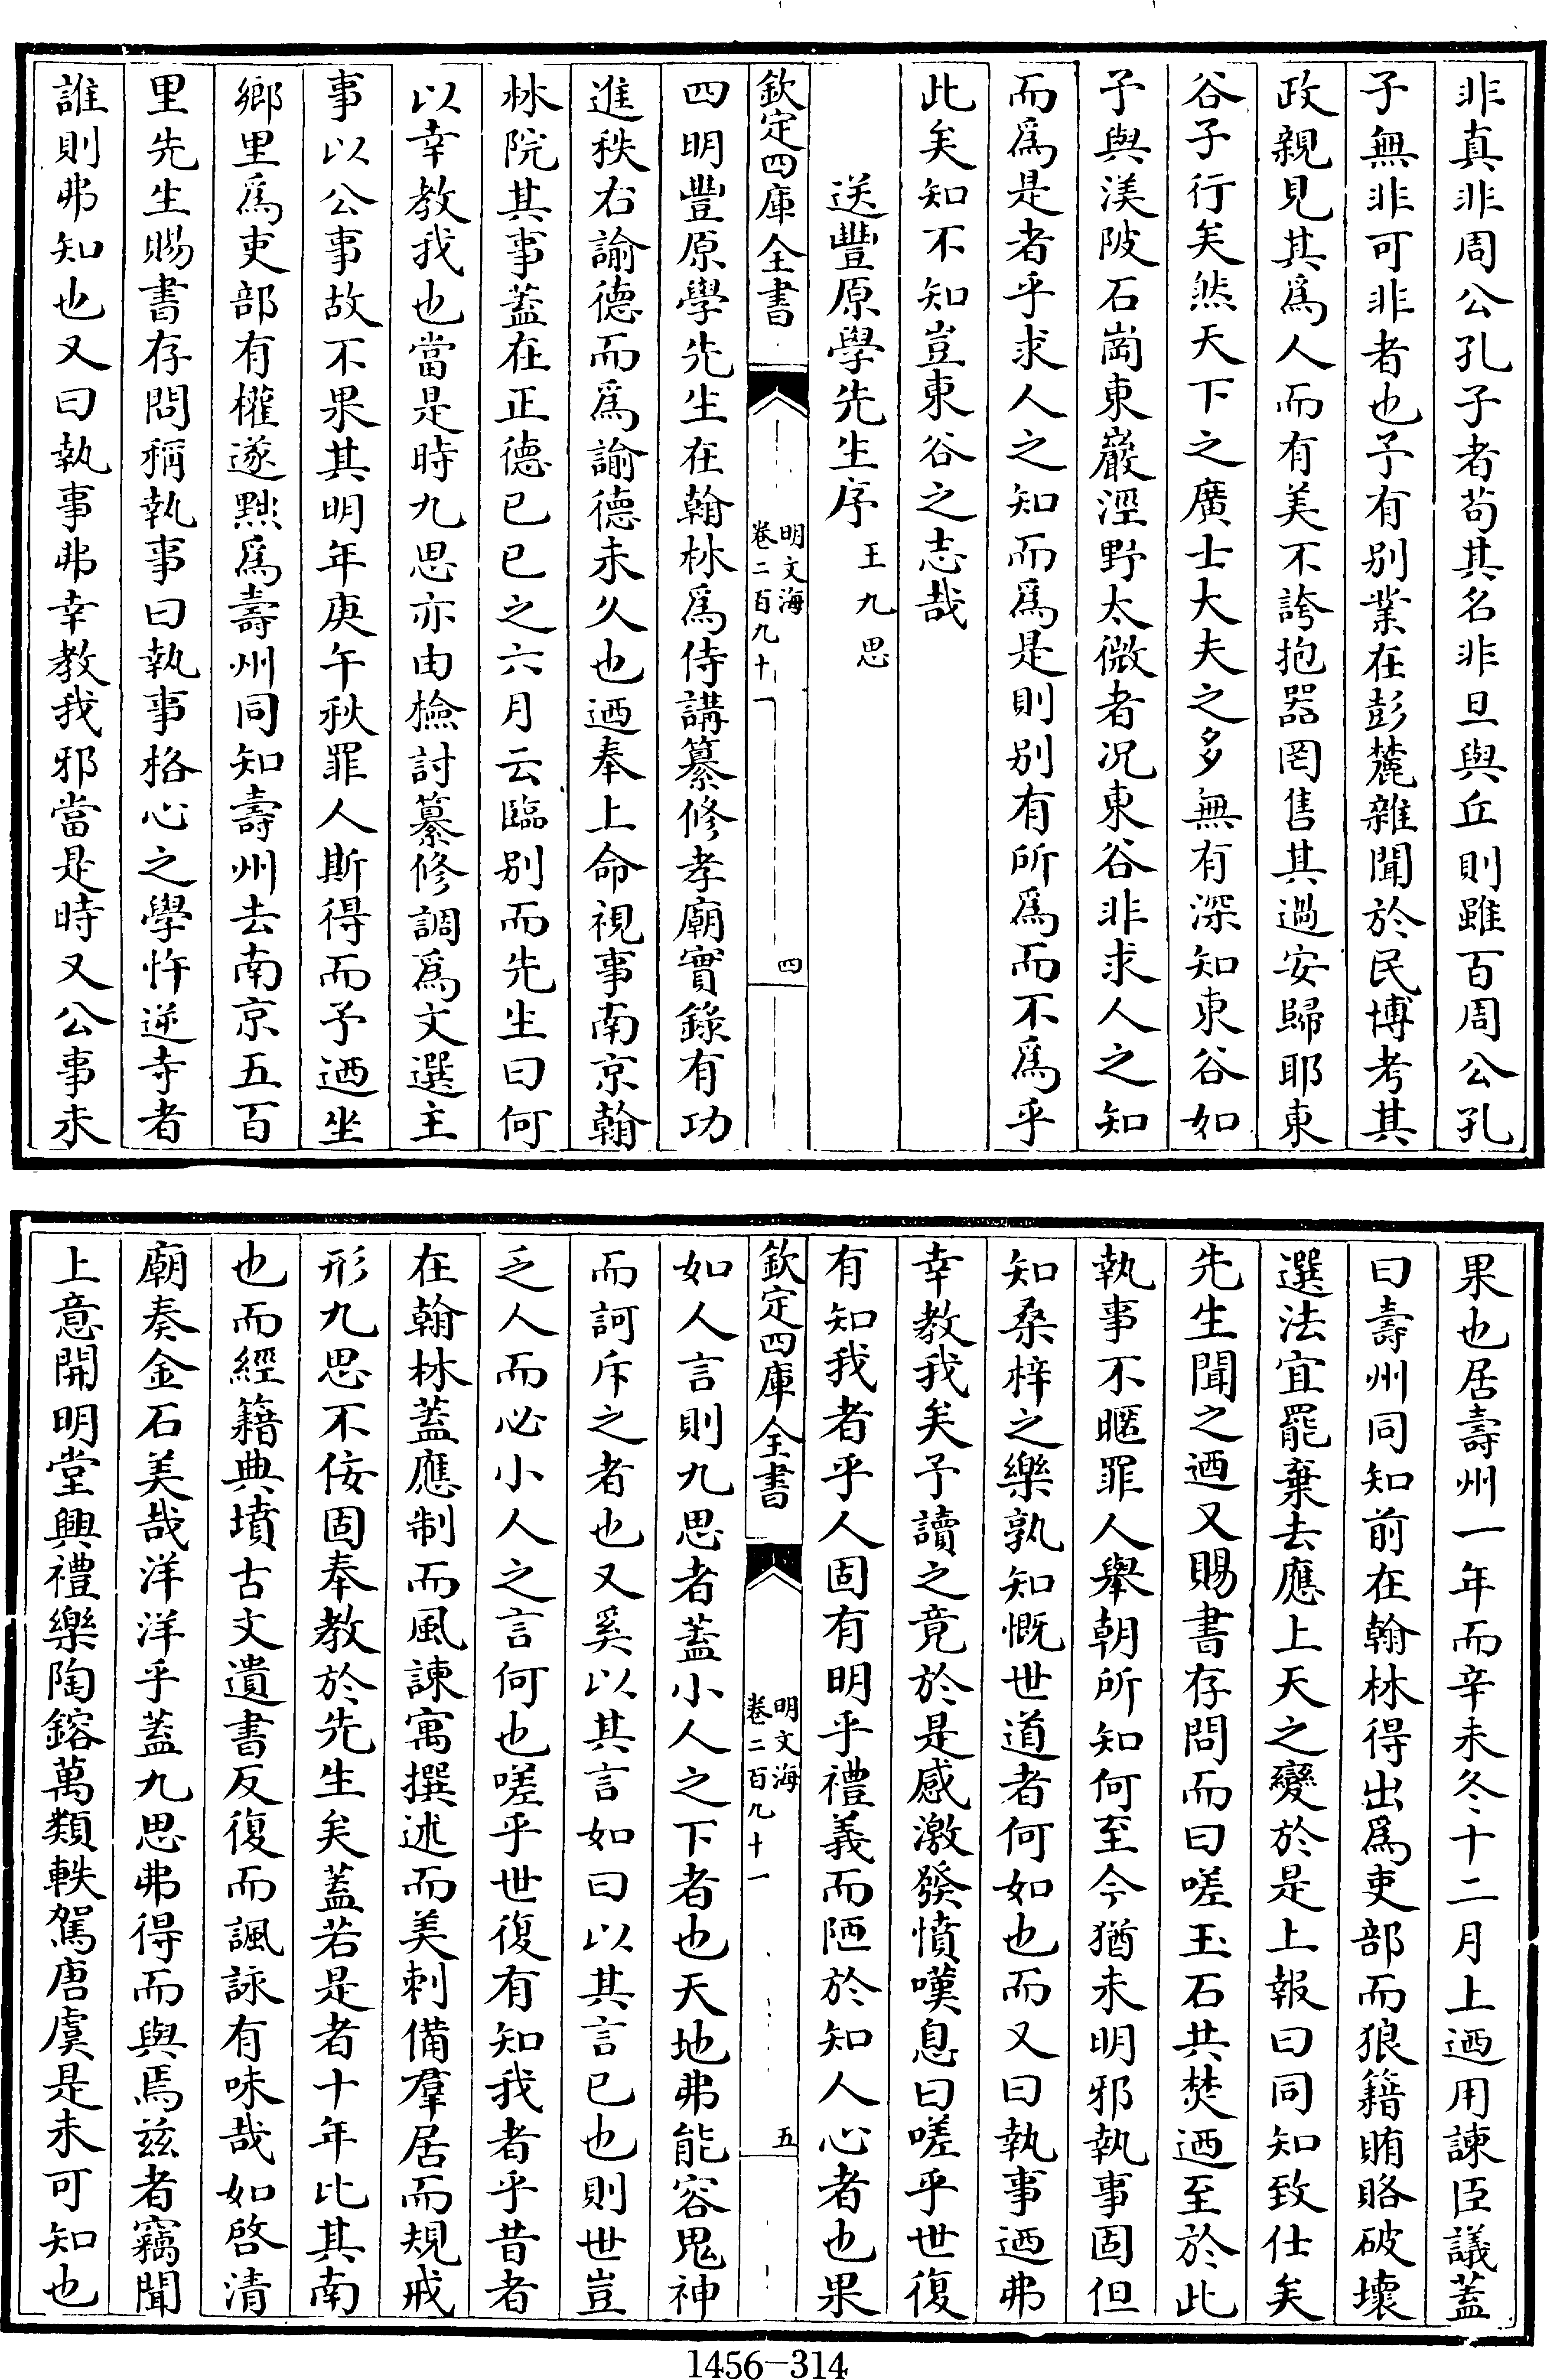 非真非周公孔子者苟其名非旦與丘則雖百周公孔
子無非可非者也予有别業在彭麓雜聞於民博考其
政親見其爲人而有美不誇抱器罔售其過安歸耶東
谷子行矣然天下之廣士大夫之多無有深知東谷如
予與渼陂石崗東巖涇野太微者况東谷非求人之知
而爲是者乎求人之知而爲是則别有所爲而不爲乎
此矣知不知豈東谷之志哉
送豐原學先生序 王九思
欽定四庫全書 明文海 卷二百九十一 四
四明豐原學先生在翰林爲侍講纂修孝廟實錄有功
進秩右諭德而爲諭德未久也廼奉上命視事南京翰
林院其事蓋在正德已巳之六月云臨别而先生曰何
以幸教我也當是時九思亦由檢討纂修調爲文選主
事以公事故不果其明年庚午秋罪人斯得而予廼坐
鄉里爲吏部有權遂黜爲壽州同知壽州去南京五百
里先生賜書存問稱執事曰執事格心之學忤逆寺者
誰則弗知也又曰執事弗幸教我邪當是時又公事未
果也居壽州一年而辛未冬十二月上廼用諫臣議蓋
曰壽州同知前在翰林得出爲吏部而狼籍賄賂破壞
選法宜罷棄去應上天之變於是上報曰同知致仕矣
先生聞之廼又賜書存問而曰嗟玉石共焚廼至於此
執事不暱罪人舉朝所知何至今猶未明邪執事固但
知桑梓之樂孰知慨世道者何如也而又曰執事廼弗
幸教我矣予讀之竟於是感激發憤嘆息曰嗟乎世復
有知我者乎人固有明乎禮義而陋於知人心者也果
欽定四庫全書 明文海 卷二百九十一 五
如人言則九思者蓋小人之下者也天地弗能容鬼神
而訶斥之者也又奚以其言如曰以其言已也則世豈
乏人而必小人之言何也嗟乎世復有知我者乎昔者
在翰林蓋應制而風諫寓撰述而美刺備羣居而規戒
形九思不佞固奉教於先生矣蓋若是者十年比其南
也而經籍典墳古文遺書反復而諷詠有味哉如啓清
廟奏金石美哉洋洋乎蓋九思弗得而與焉兹者竊聞
上意開明堂興禮樂陶鎔萬類軼駕唐虞是未可知也
1456-314